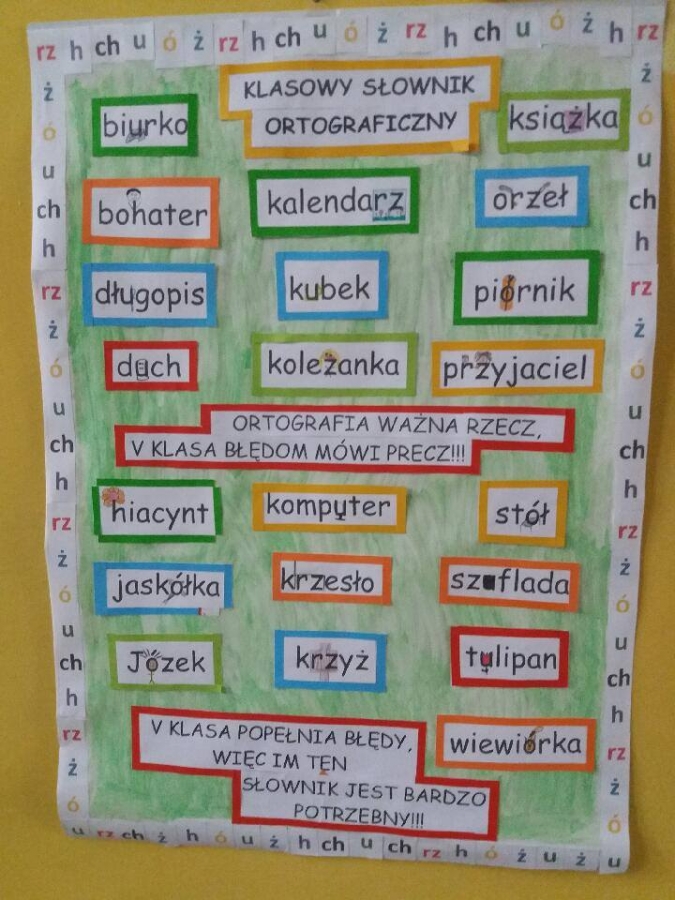 rz h ch u ó ż rz h ch u ó ż rz h ch u ó ż h rz
KLASOWY SŁOWNIK
ORTOGRAFICZNY
biurko
książka
bohater
kalendarz
orzeł
długopis
kubek
piórnik
duch
koleżanka
przyjaciel
ORTOGRAFIA WAŻNA RZECZ,
V KLASA BŁĘDOM MÓWI PRECZ!!!
hiacynt
komputer
stół
jaskółka
krzesło
szuflada
Józek
krzyż
tulipan
wiewiórka
V KLASA POPEŁNIA BŁĘDY,
WIĘC IM TEN
SŁOWNIK JEST BARDZO
POTRZEBNY!!!
ż
ó
u
ch
h
rz
ż
ó
u
ch
h
rz
ż
ó
u
ch
h
rz
ż
ó
ż
ó
u
ch
h
rz
ż
ó
u
ch
h
rz
ż
ó
u
ch
h
rz
ż
ó
u rz ch ż h ó u ż h ch u ch rz h ó ż u ż u